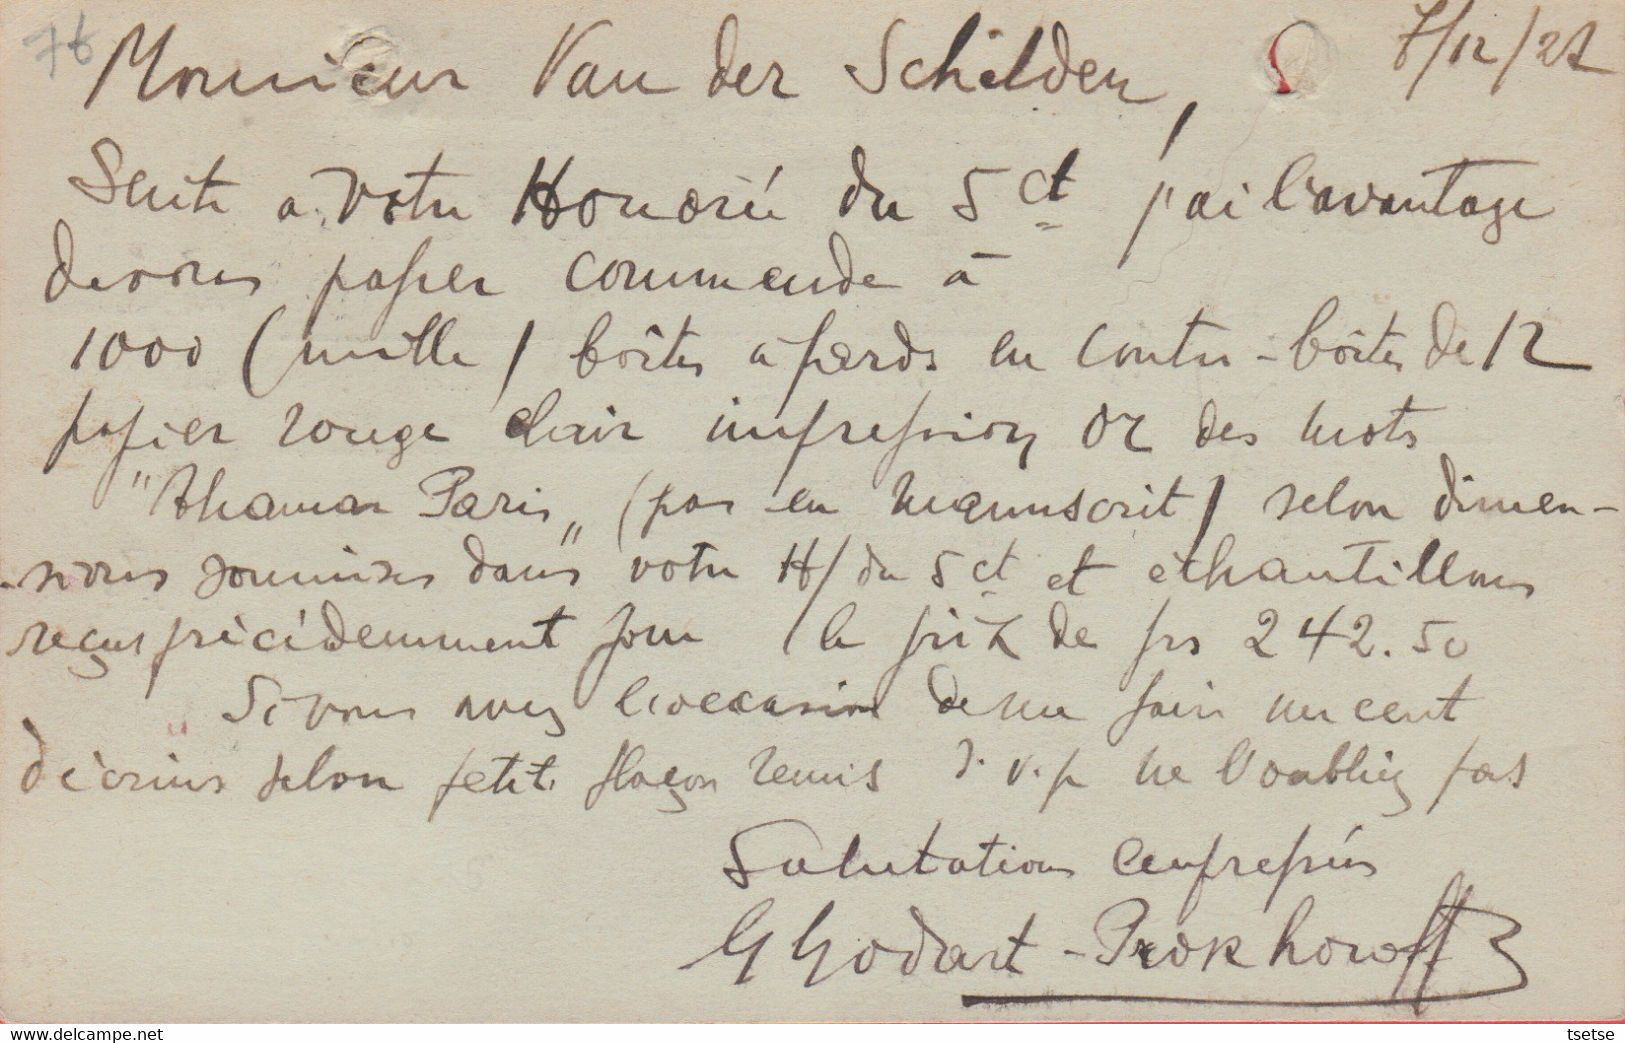 76
Monsieur Van der Schilden, 7/12/27
Suite à votre Honorée du 5 ct j'ai l'avantage
de vous passer commande à
1000 (mille) boîtes à fards en contre-boîtes de 12
papier rouge clair impression or des mots
"Thamar Paris" (pas en manuscrit) selon dimen-
-sions soumises dans votre H/ du 5 ct et échantillons
reçus précédemment pour le prix de frs 242.50
Si vous avez l'occasion de me faire un cent
d'écrins selon petit flaçon remis s.v.p ne l'oubliez pas
Salutations empressées
G Godart-Prokhoroff
tsetse